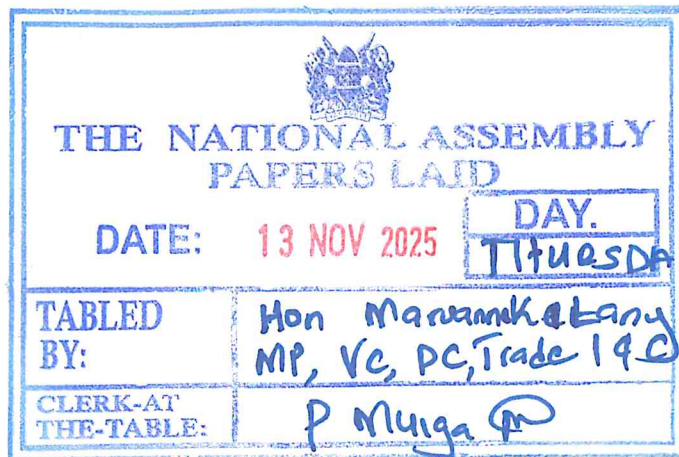 THE NATIONAL ASSEMBLY
PAPERS LAID
DATE: 13 NOV 2025
DAY.
TABLED
BY:
Hon
MP, VC, DC, Trade I & C
CLERK-AT
THE-TABLE:
P Muiga